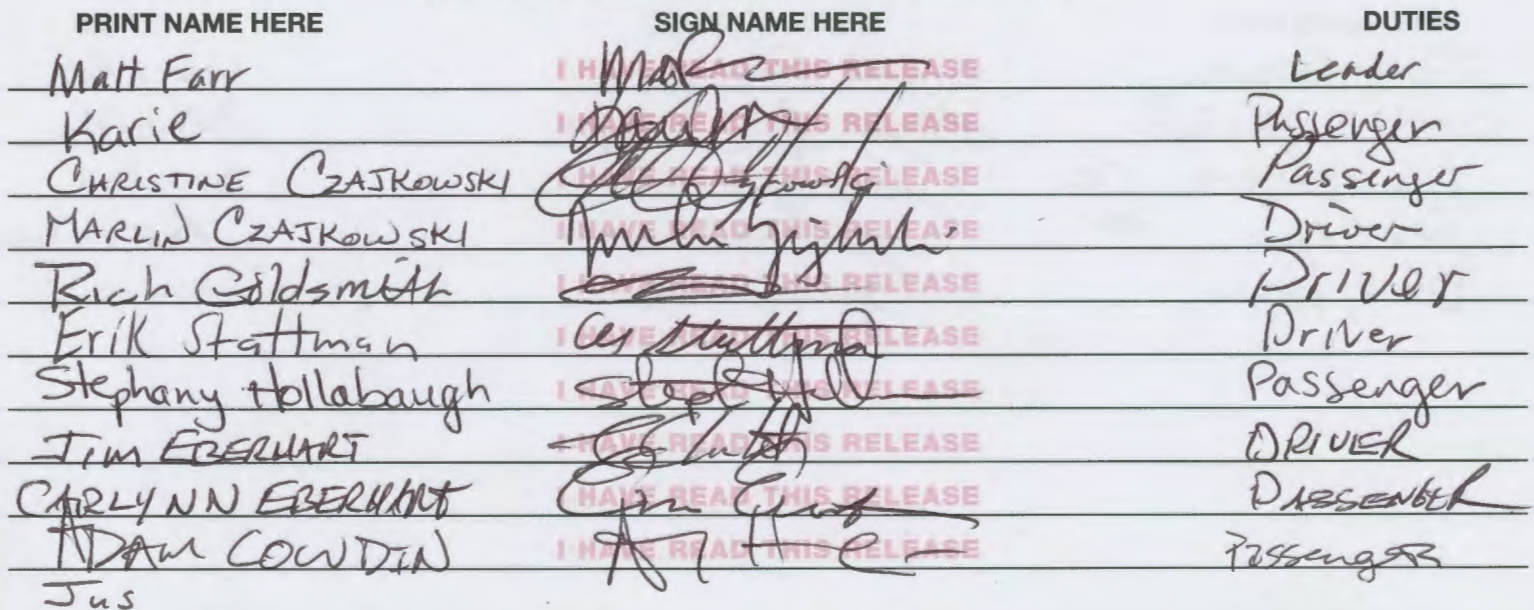 PRINT NAME HERE SIGN NAME HERE DUTIES
Matt Farr I HAVE READ THIS RELEASE Leader
Karie I HAVE READ THIS RELEASE Passenger
CHRISTINE CZAJKOWSKI I HAVE READ THIS RELEASE Passenger
MARLIN CZAJKOWSKI I HAVE READ THIS RELEASE Driver
Rich Goldsmith I HAVE READ THIS RELEASE Driver
Erik Stattman I HAVE READ THIS RELEASE Driver
Stephany Hollabaugh I HAVE READ THIS RELEASE Passenger
JIM EBERHART I HAVE READ THIS RELEASE DRIVER
CARLYNN EBERHART I HAVE READ THIS RELEASE PASSENGER
ADAM COWDIN I HAVE READ THIS RELEASE Passenger
Jus